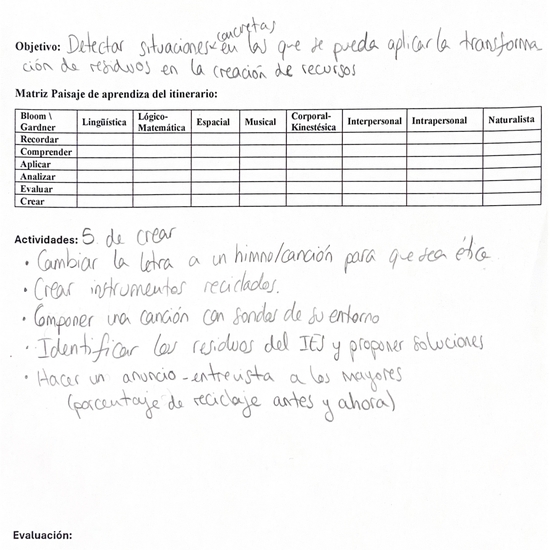 concretas
Objetivo: Detectar situaciones en las que se pueda aplicar la transforma
ción de residuos en la creación de recursos
Matriz Paisaje de aprendiza del itinerario:
Bloom \ Gardner | Lingüística | Lógico-Matemática | Espacial | Musical | Corporal-Kinestésica | Interpersonal | Intrapersonal | Naturalista
Recordar
Comprender
Aplicar
Analizar
Evaluar
Crear
Actividades: 5 de crear
• Cambiar la letra a un himno/canción para que sea ética
• Crear instrumentos reciclados.
• Componer una canción con sonidos de su entorno
• Identificar los residuos del IES y proponer soluciones
• Hacer un anuncio-entrevista a los mayores
(porcentaje de reciclaje antes y ahora)
Evaluación: